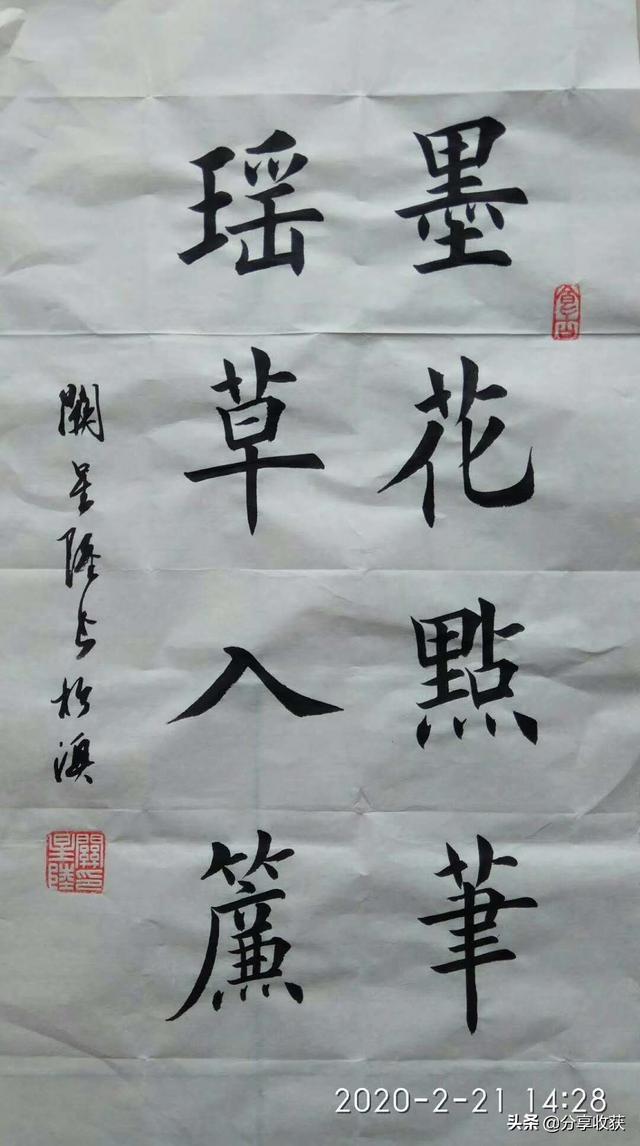 墨花點筆
瑶草入簾
關星陸書於澳
關星陸印
2020-2-21 14:28
头条 @分享收获